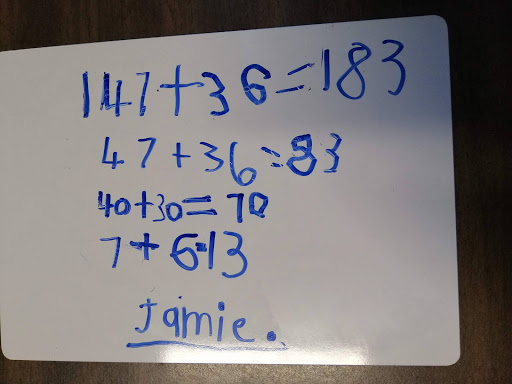 147+36=183
47+36=83
40+30=70
7+6=13
Jamie.